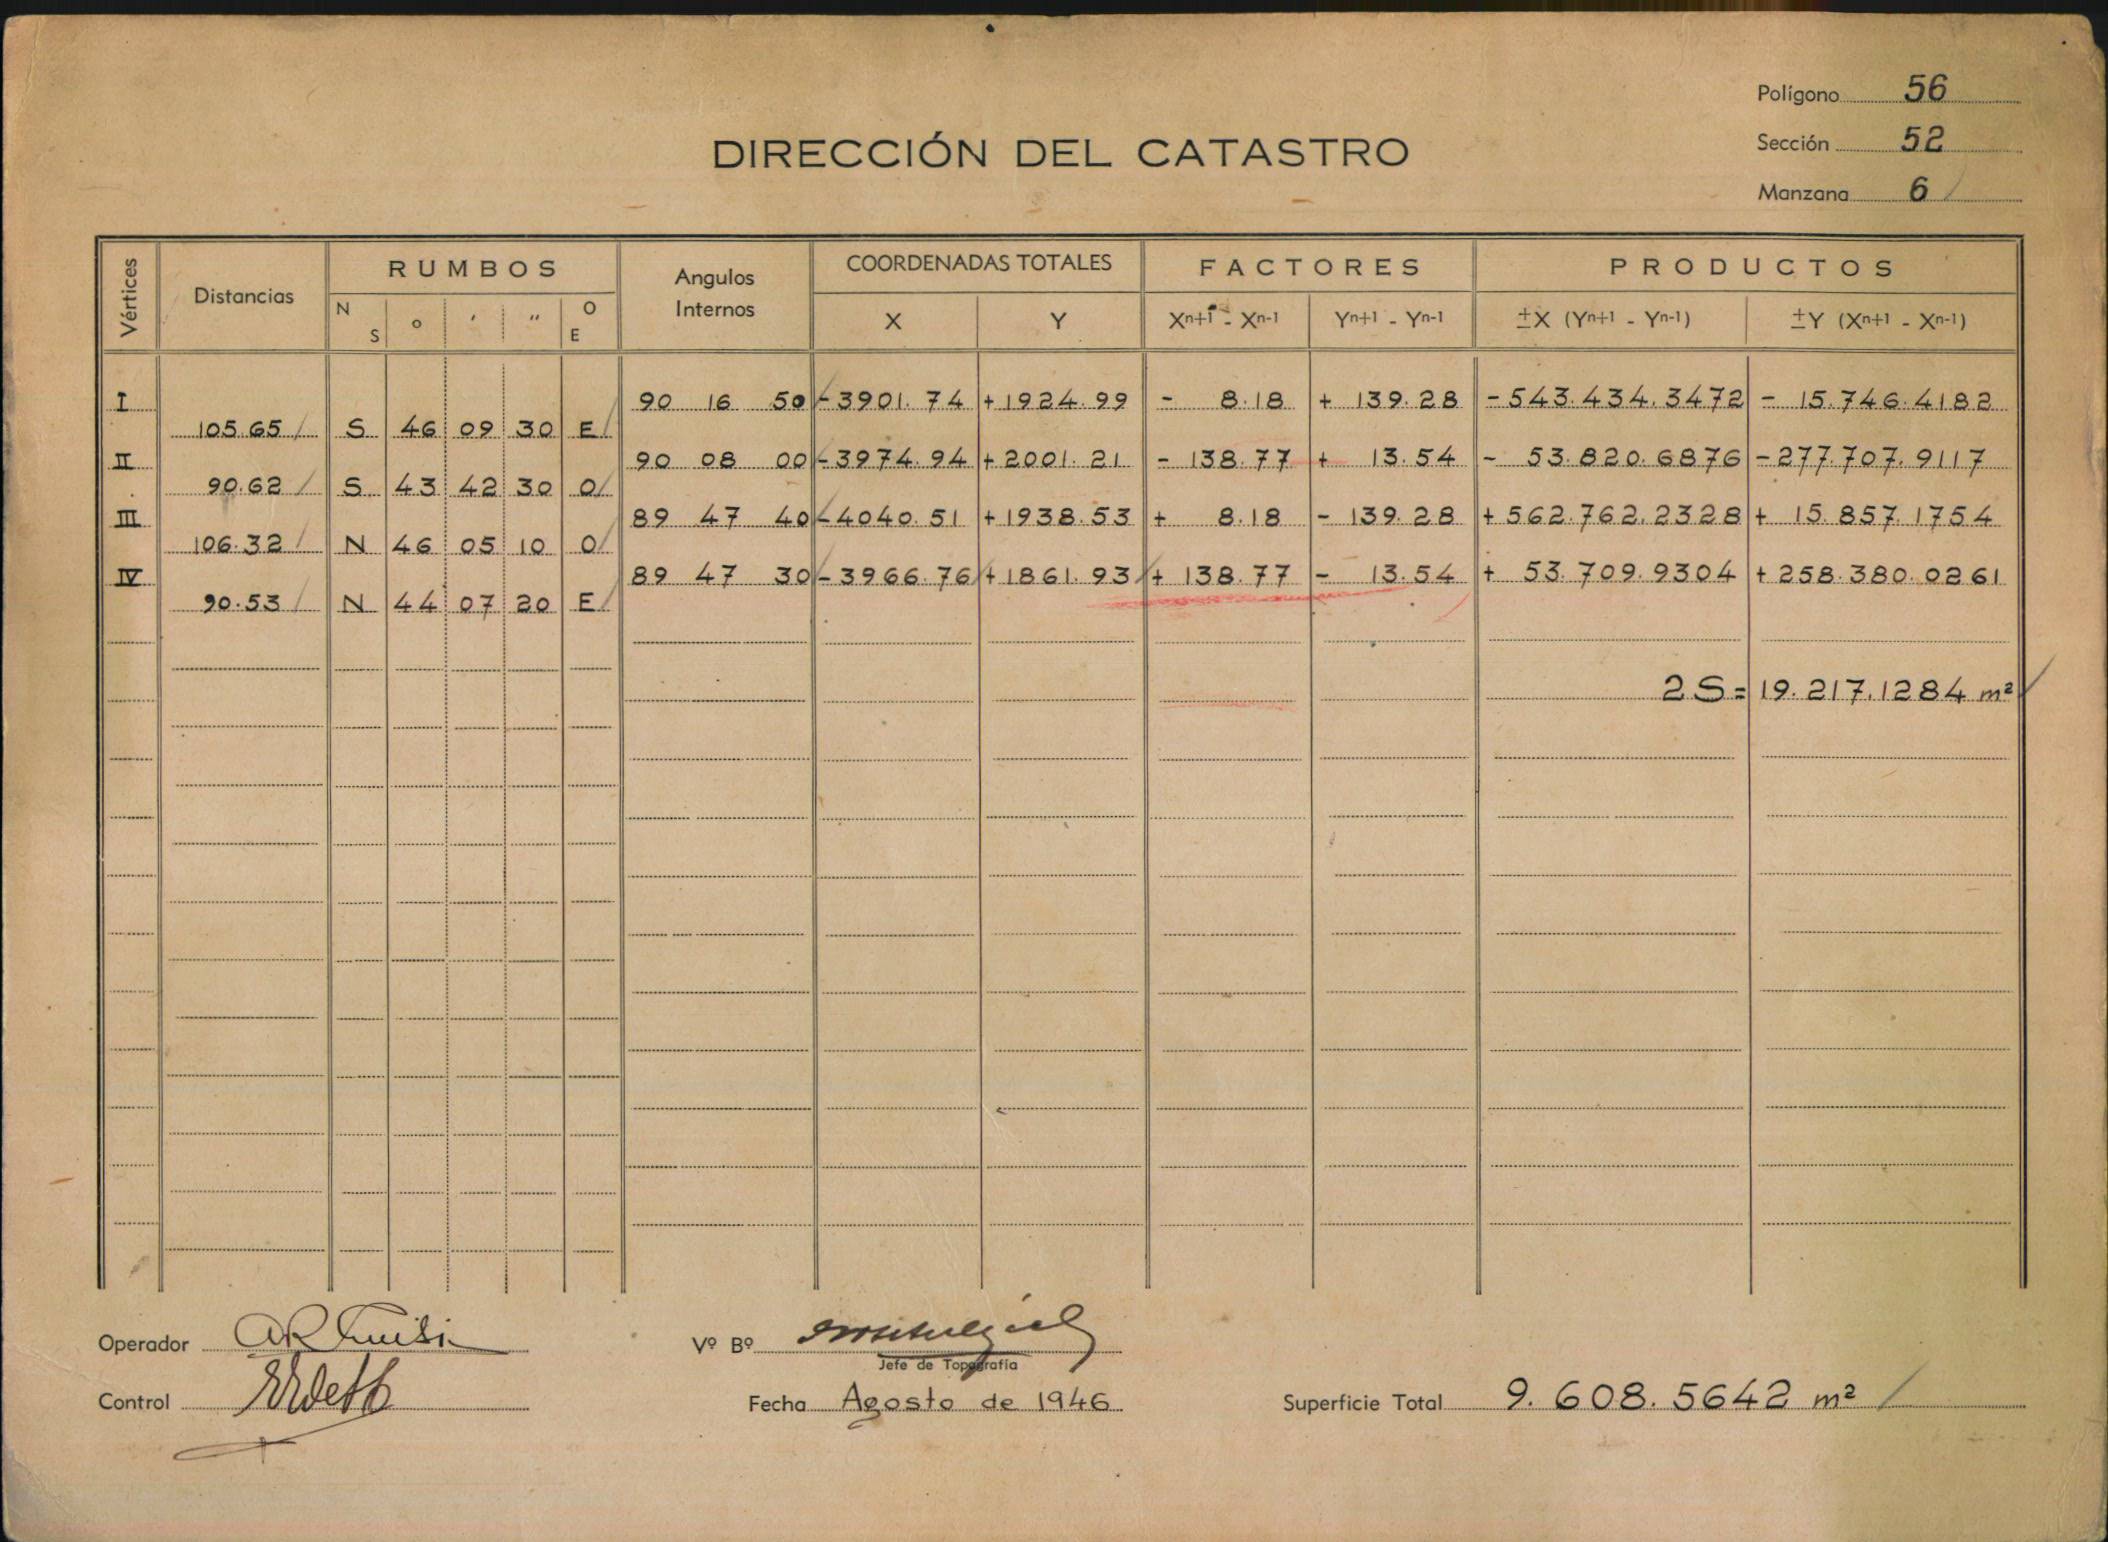 Polígono 56
Sección 52
Manzana 6
DIRECCIÓN DEL CATASTRO
Vértices Distancias RUMBOS Angulos Internos COORDENADAS TOTALES FACTORES PRODUCTOS
N S o ′ ″ O E X Y Xn+1 - Xn-1 Yn+1 - Yn-1 ±X (Yn+1 - Yn-1) ±Y (Xn+1 - Xn-1)
I 90 16 50 -3901.74 +1924.99 - 8.18 + 139.28 -543.434.3472 - 15.746.4182
105.65 S 46 09 30 E
II 90 08 00 -3974.94 +2001.21 - 138.77 + 13.54 - 53.820.6876 -277.707.9117
90.62 S 43 42 30 O
III 89 47 40 -4040.51 +1938.53 + 8.18 - 139.28 +562.762.2328 + 15.857.1754
106.32 N 46 05 10 O
IV 89 47 30 -3966.76 +1861.93 + 138.77 - 13.54 + 53.709.9304 +258.380.0261
90.53 N 44 07 20 E
2S= 19.217.1284 m²
Operador
Vº Bº
Jefe de Topografía
Control
Fecha Agosto de 1946
Superficie Total 9.608.5642 m²